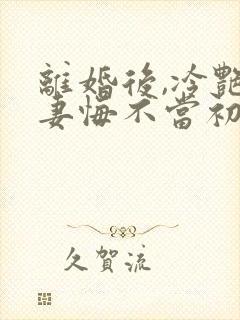 離婚後,冷艷
妻悔不當初
久賀流